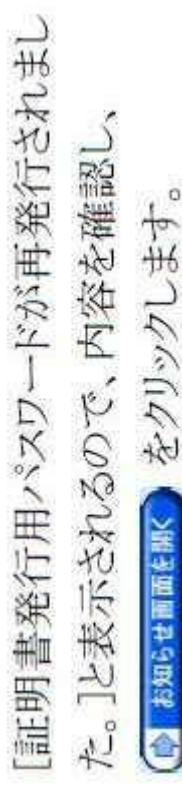 [証明書発行用パスワードが再発行されまし
た。]と表示されるので、内容を確認し、
お知らせ画面を開く をクリックします。